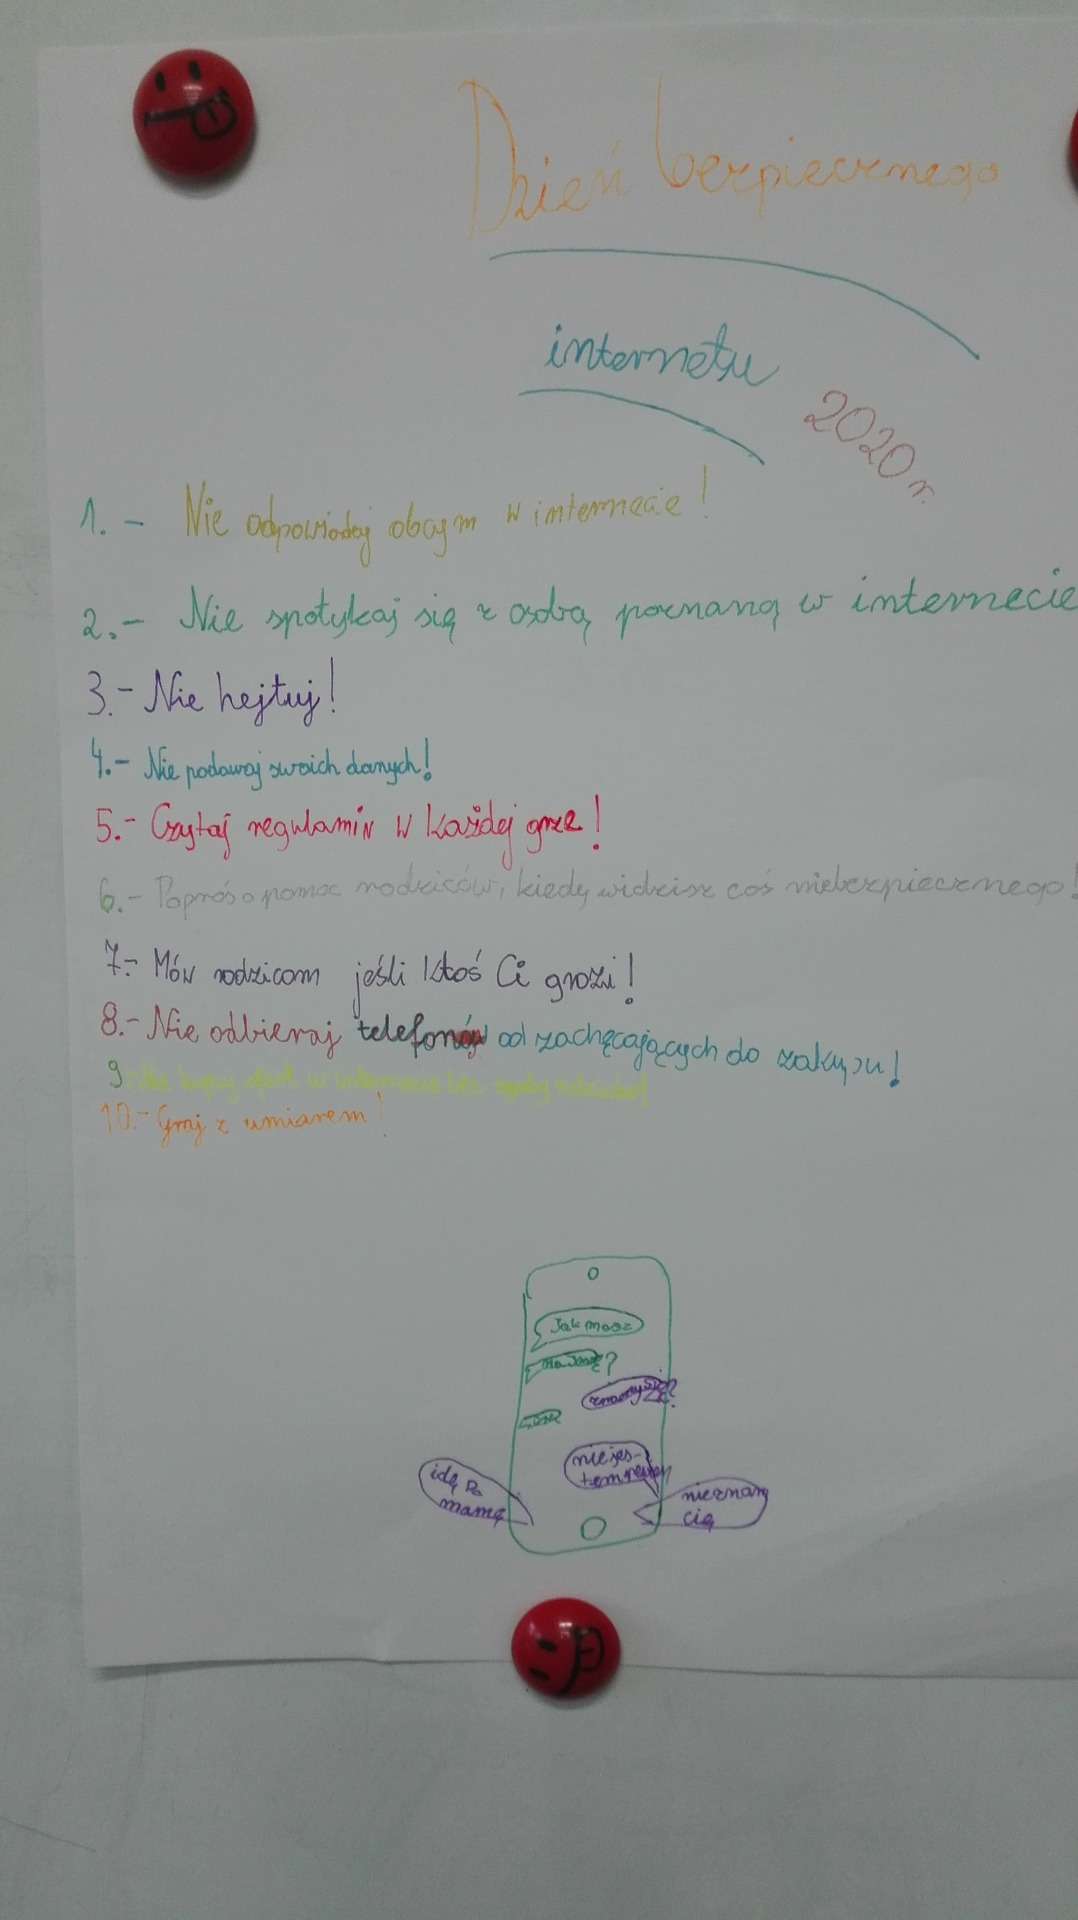 Dzień bezpiecznego
internetu
2020 r.
1. - Nie odpowiadaj obcym w internecie!
2. - Nie spotykaj się z osobą poznaną w internecie
3. - Nie hejtuj!
4. - Nie podawaj swoich danych!
5. - Czytaj regulamin w każdej grze!
6. - Poproś o pomoc rodziców, kiedy widzisz coś niebezpiecznego!
7. - Mów rodzicom jeśli ktoś Ci grozi!
8. - Nie odbieraj telefonów od zachęcających do zakupu!
9. - Nie kupuj ofert w internecie bez zgody rodziców!
10. - Graj z umiarem!
Jak masz
na imię?
znamy się?
nie jes-
tem pewien
idę po
mamę
nieznam
cię